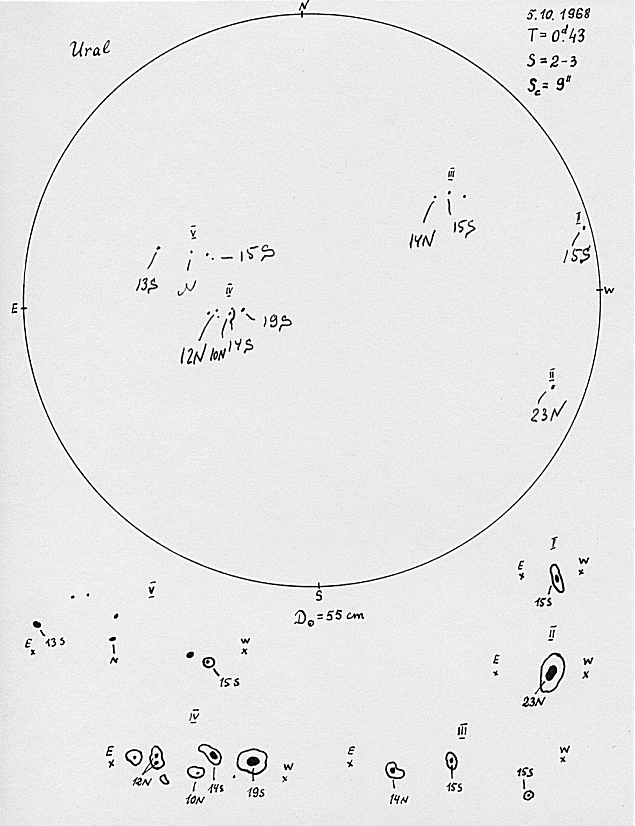 N
5.10.1968
Ural
T = 0ᵈ.43
S = 2-3
S_c = 9"
III
14N 15S
I
15S
W
V
15S
13S N
IV
19S
12N 10N 14S
E
II
23N
S
D₀ = 55 cm
I
E W
15S
V
E 13S N W
15S
II
E W
23N
IV
E W
12N 10N 14S 19S
III
E W
14N 15S 15S